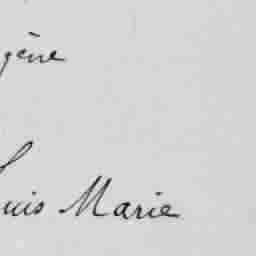 gène
Louis Marie